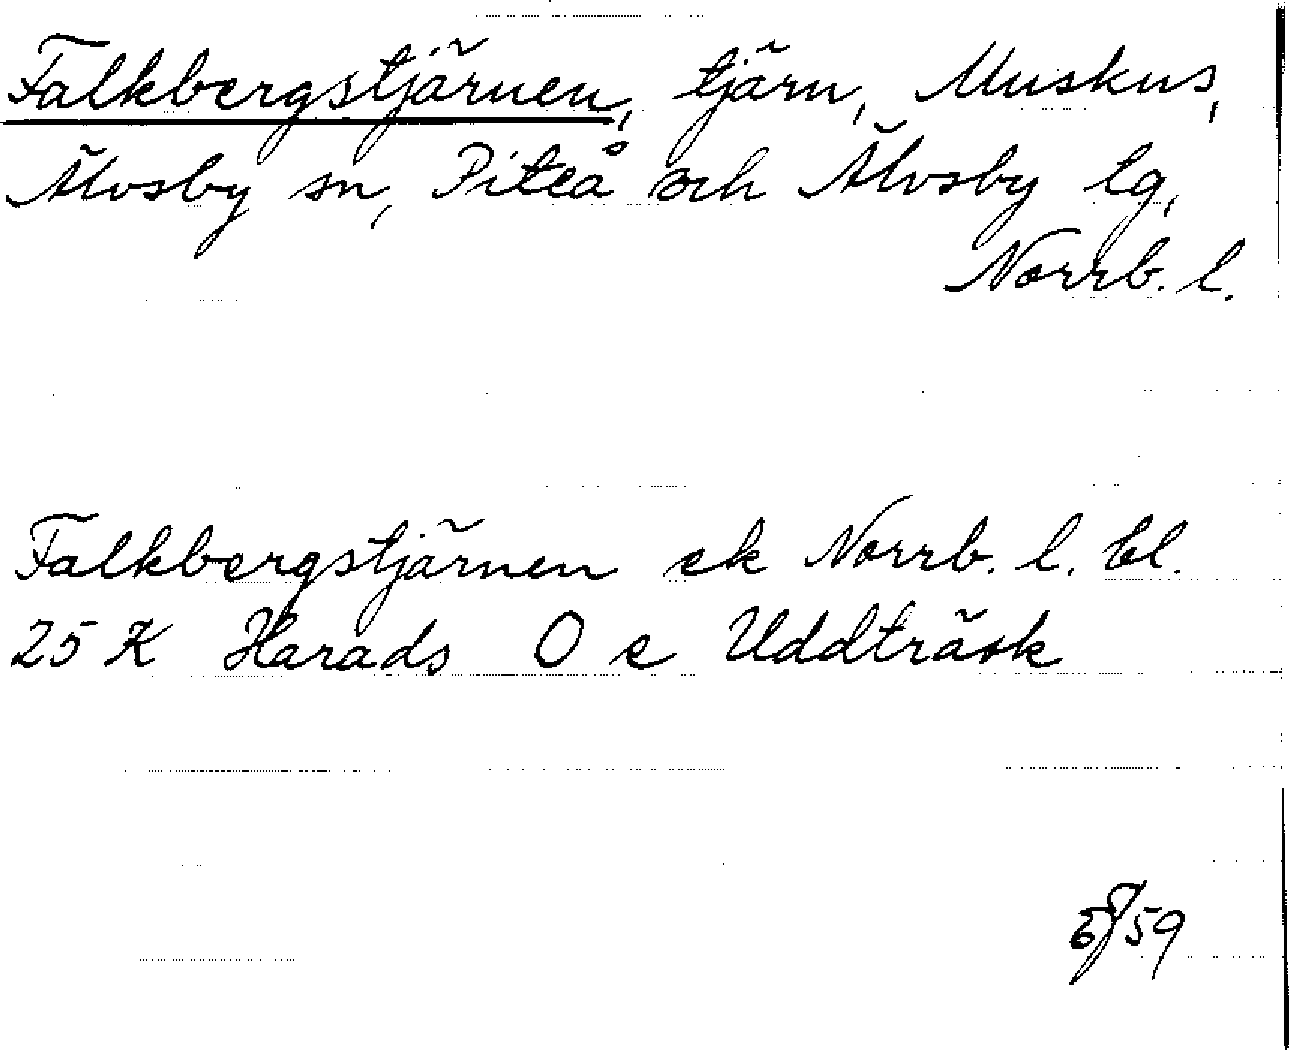 Falkbergstjärnen, tjärn, Muskus,
Älvsby sn, Piteå och Älvsby tg,
Norrb. l.
Falkbergstjärnen ek Norrb. l. bl.
25 K Harads O e Uddträsk
59